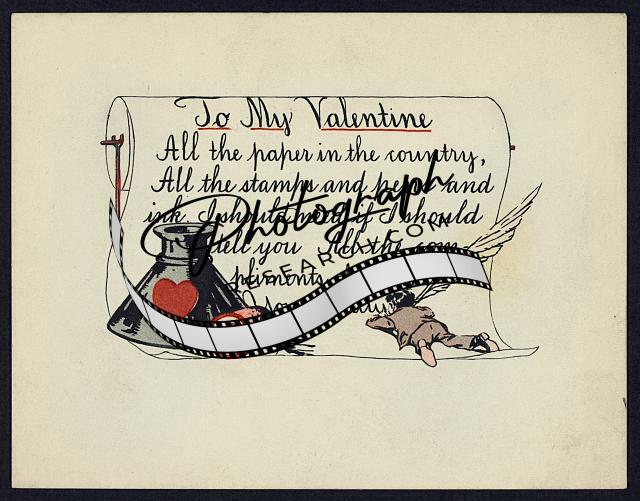 To My Valentine
All the paper in the country,
All the stamps and pens and
ink I should need if I should
tell you All the com-
pliments
Photograph
RESEARCHY.COM